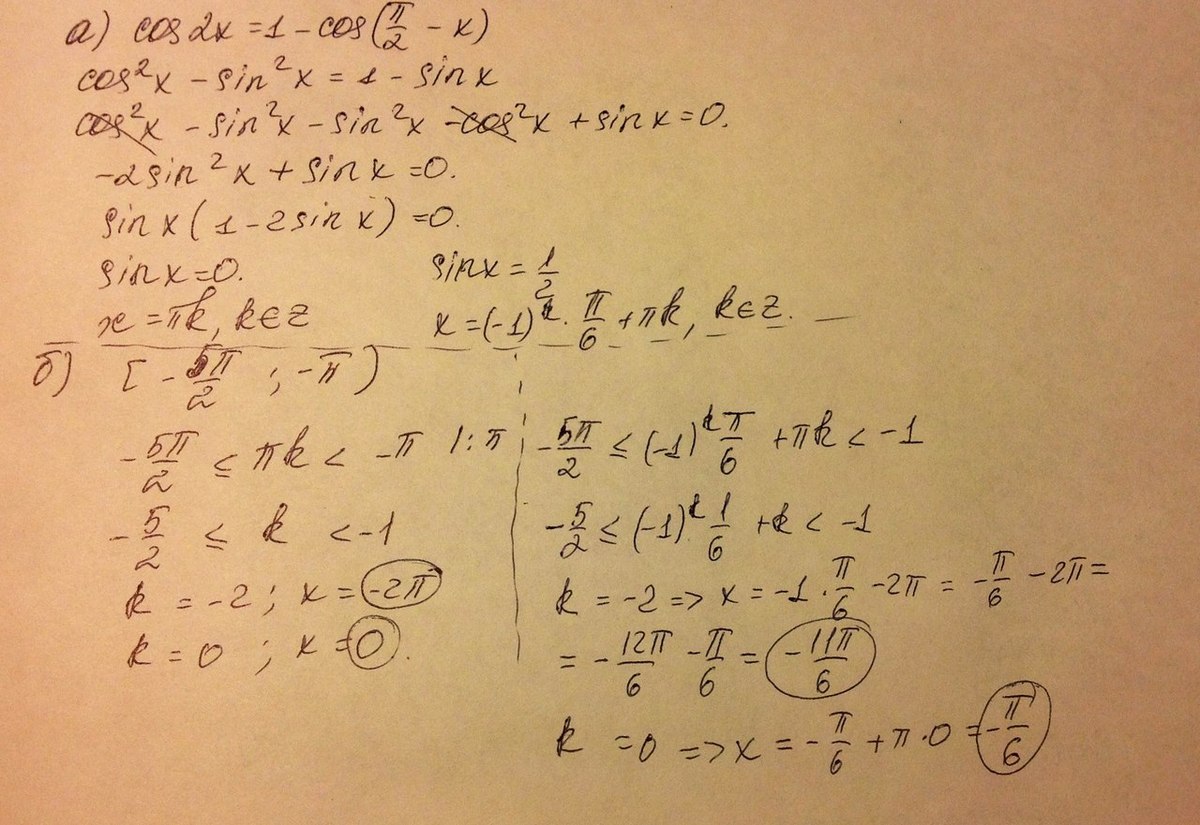 а) cos 2x = 1 - cos(π/2 - x)
cos²x - sin²x = 1 - sin x
cos²x - sin²x - sin²x - cos²x + sin x = 0.
-2sin²x + sin x = 0.
sin x (1 - 2sin x) = 0.
sin x = 0.
x = πk, k∈Z
sin x = 1/2
x = (-1)^k · π/6 + πk, k∈Z.
б) [-5π/2 ; -π)
-5π/2 ≤ πk < -π |:π
-5/2 ≤ k < -1
k = -2 ; x = -2π
k = 0 ; x = 0.
-5π/2 ≤ (-1)^k π/6 + πk < -1
-5/2 ≤ (-1)^k 1/6 + k < -1
k = -2 => x = -1 · π/6 - 2π = -π/6 - 2π =
= -12π/6 - π/6 = -11π/6
k = 0 => x = -π/6 + π·0 = -π/6